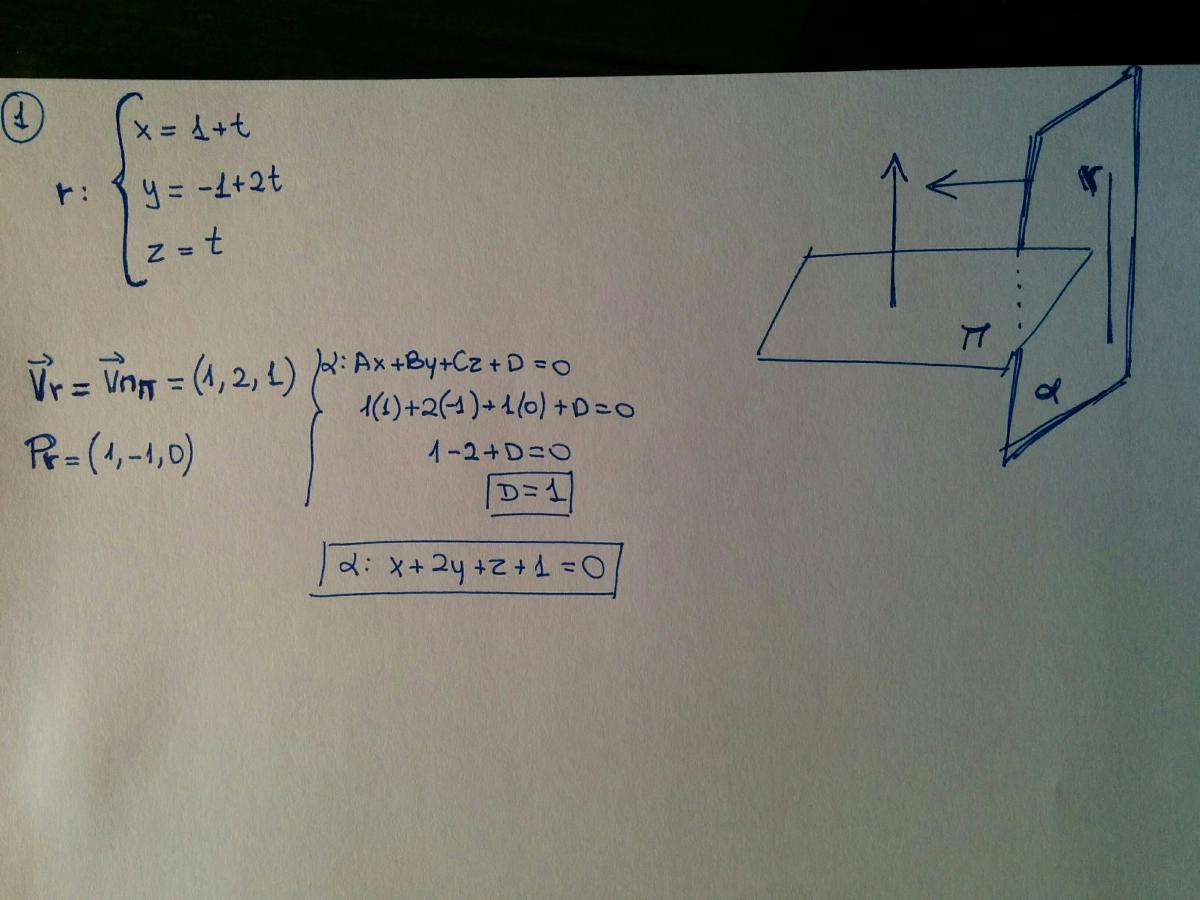 1
r: { x = 1+t
y = -1+2t
z = t
V⃗r = V⃗nπ = (1, 2, 1)
Pr = (1, -1, 0)
α: Ax+By+Cz+D=0
1(1)+2(-1)+1(0)+D=0
1-2+D=0
D=1
α: x+2y+z+1=0
r
π
α